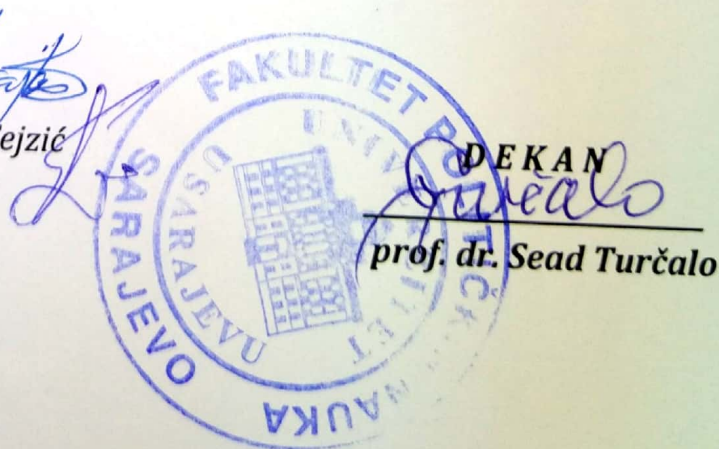 ejzić
FAKULTET POLITIČKIH NAUKA
SARAJEVO
UNIVERZITET
U SARAJEVU
DEKAN
Turčalo
prof. dr. Sead Turčalo